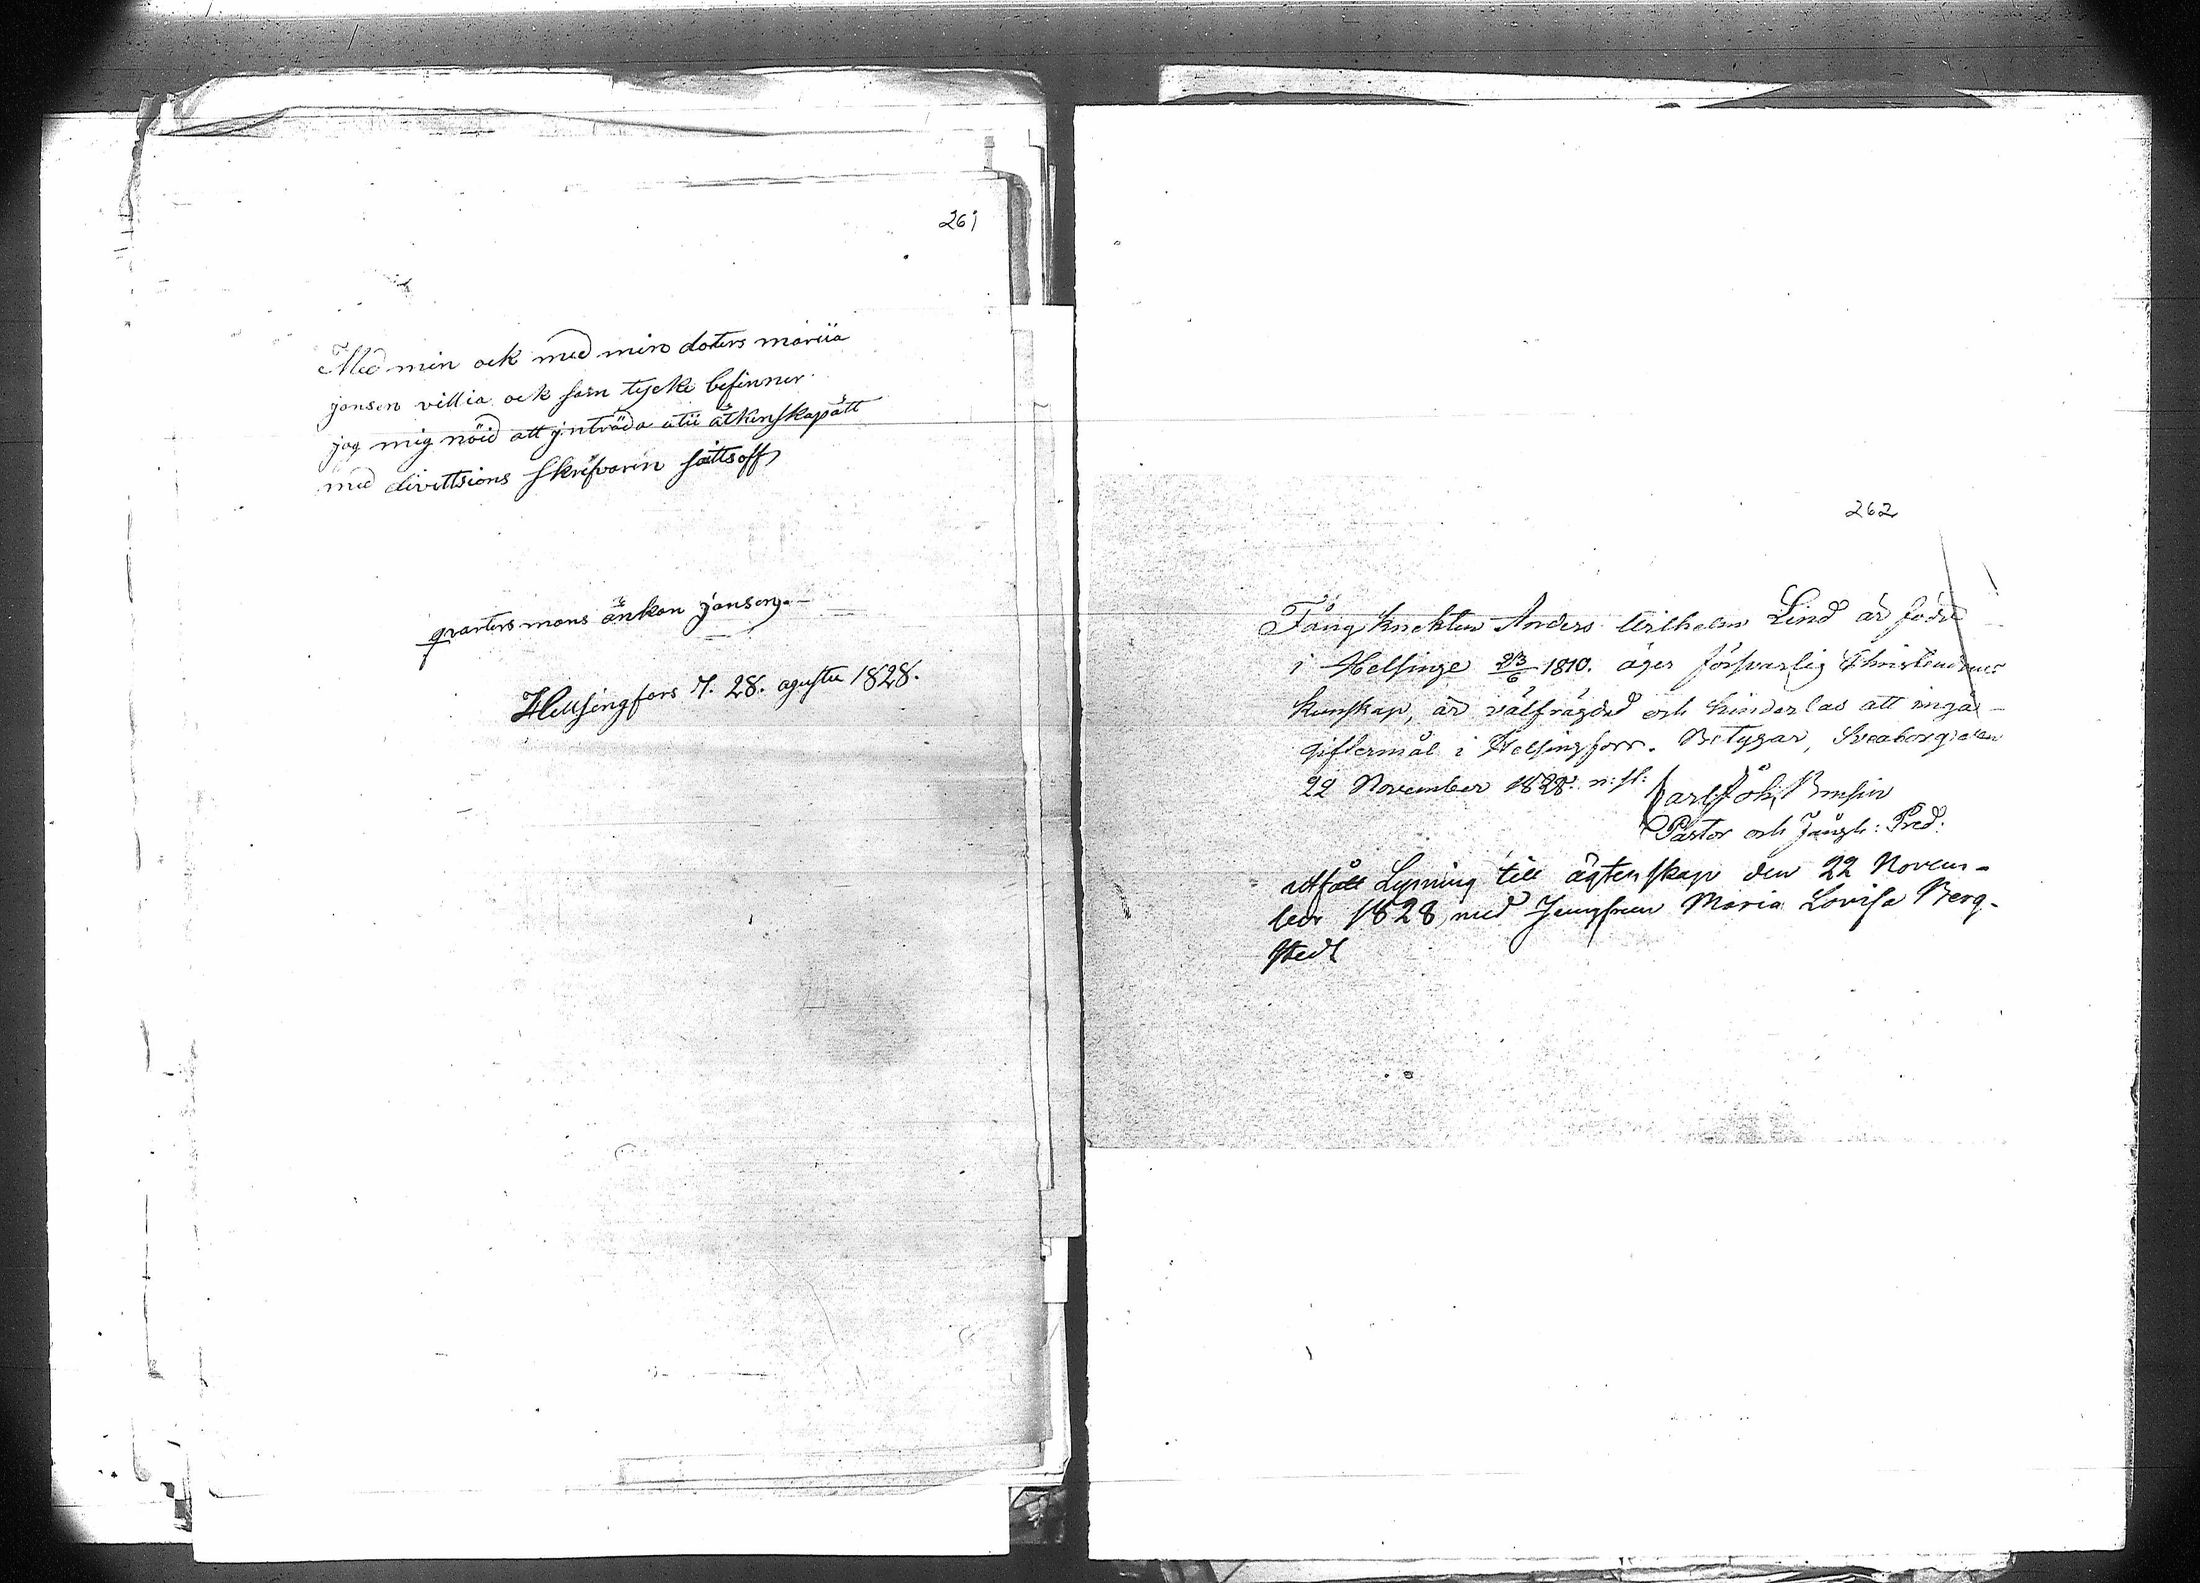 261
Med min ock med min doters mariia
jansen villia ock sam tycke befinner
jag mig nöid att jnträda utii äktenskapätt
med divittsions skrifvarin saittsoff
qvarters mans änkan jansen.
Hellsingfors d. 28. agustu 1828.
262
Fångknekten Anders Wilhelm Lind är född
i Helsinge 23/6 1810. äger försvarlig Christendoms
kunskap, är välfrägdad och hinderlös att ingå
giftermål i Helsingfors. Betygar, Sveaborg den
22 November 1828. n: st:
Carl Joh.
Pastor och Fängls: Pred:
utfått Lysning till ägtenskap den 22 Novem-
ber 1828 med Jungfrun Maria Lovisa Berg-
stedt